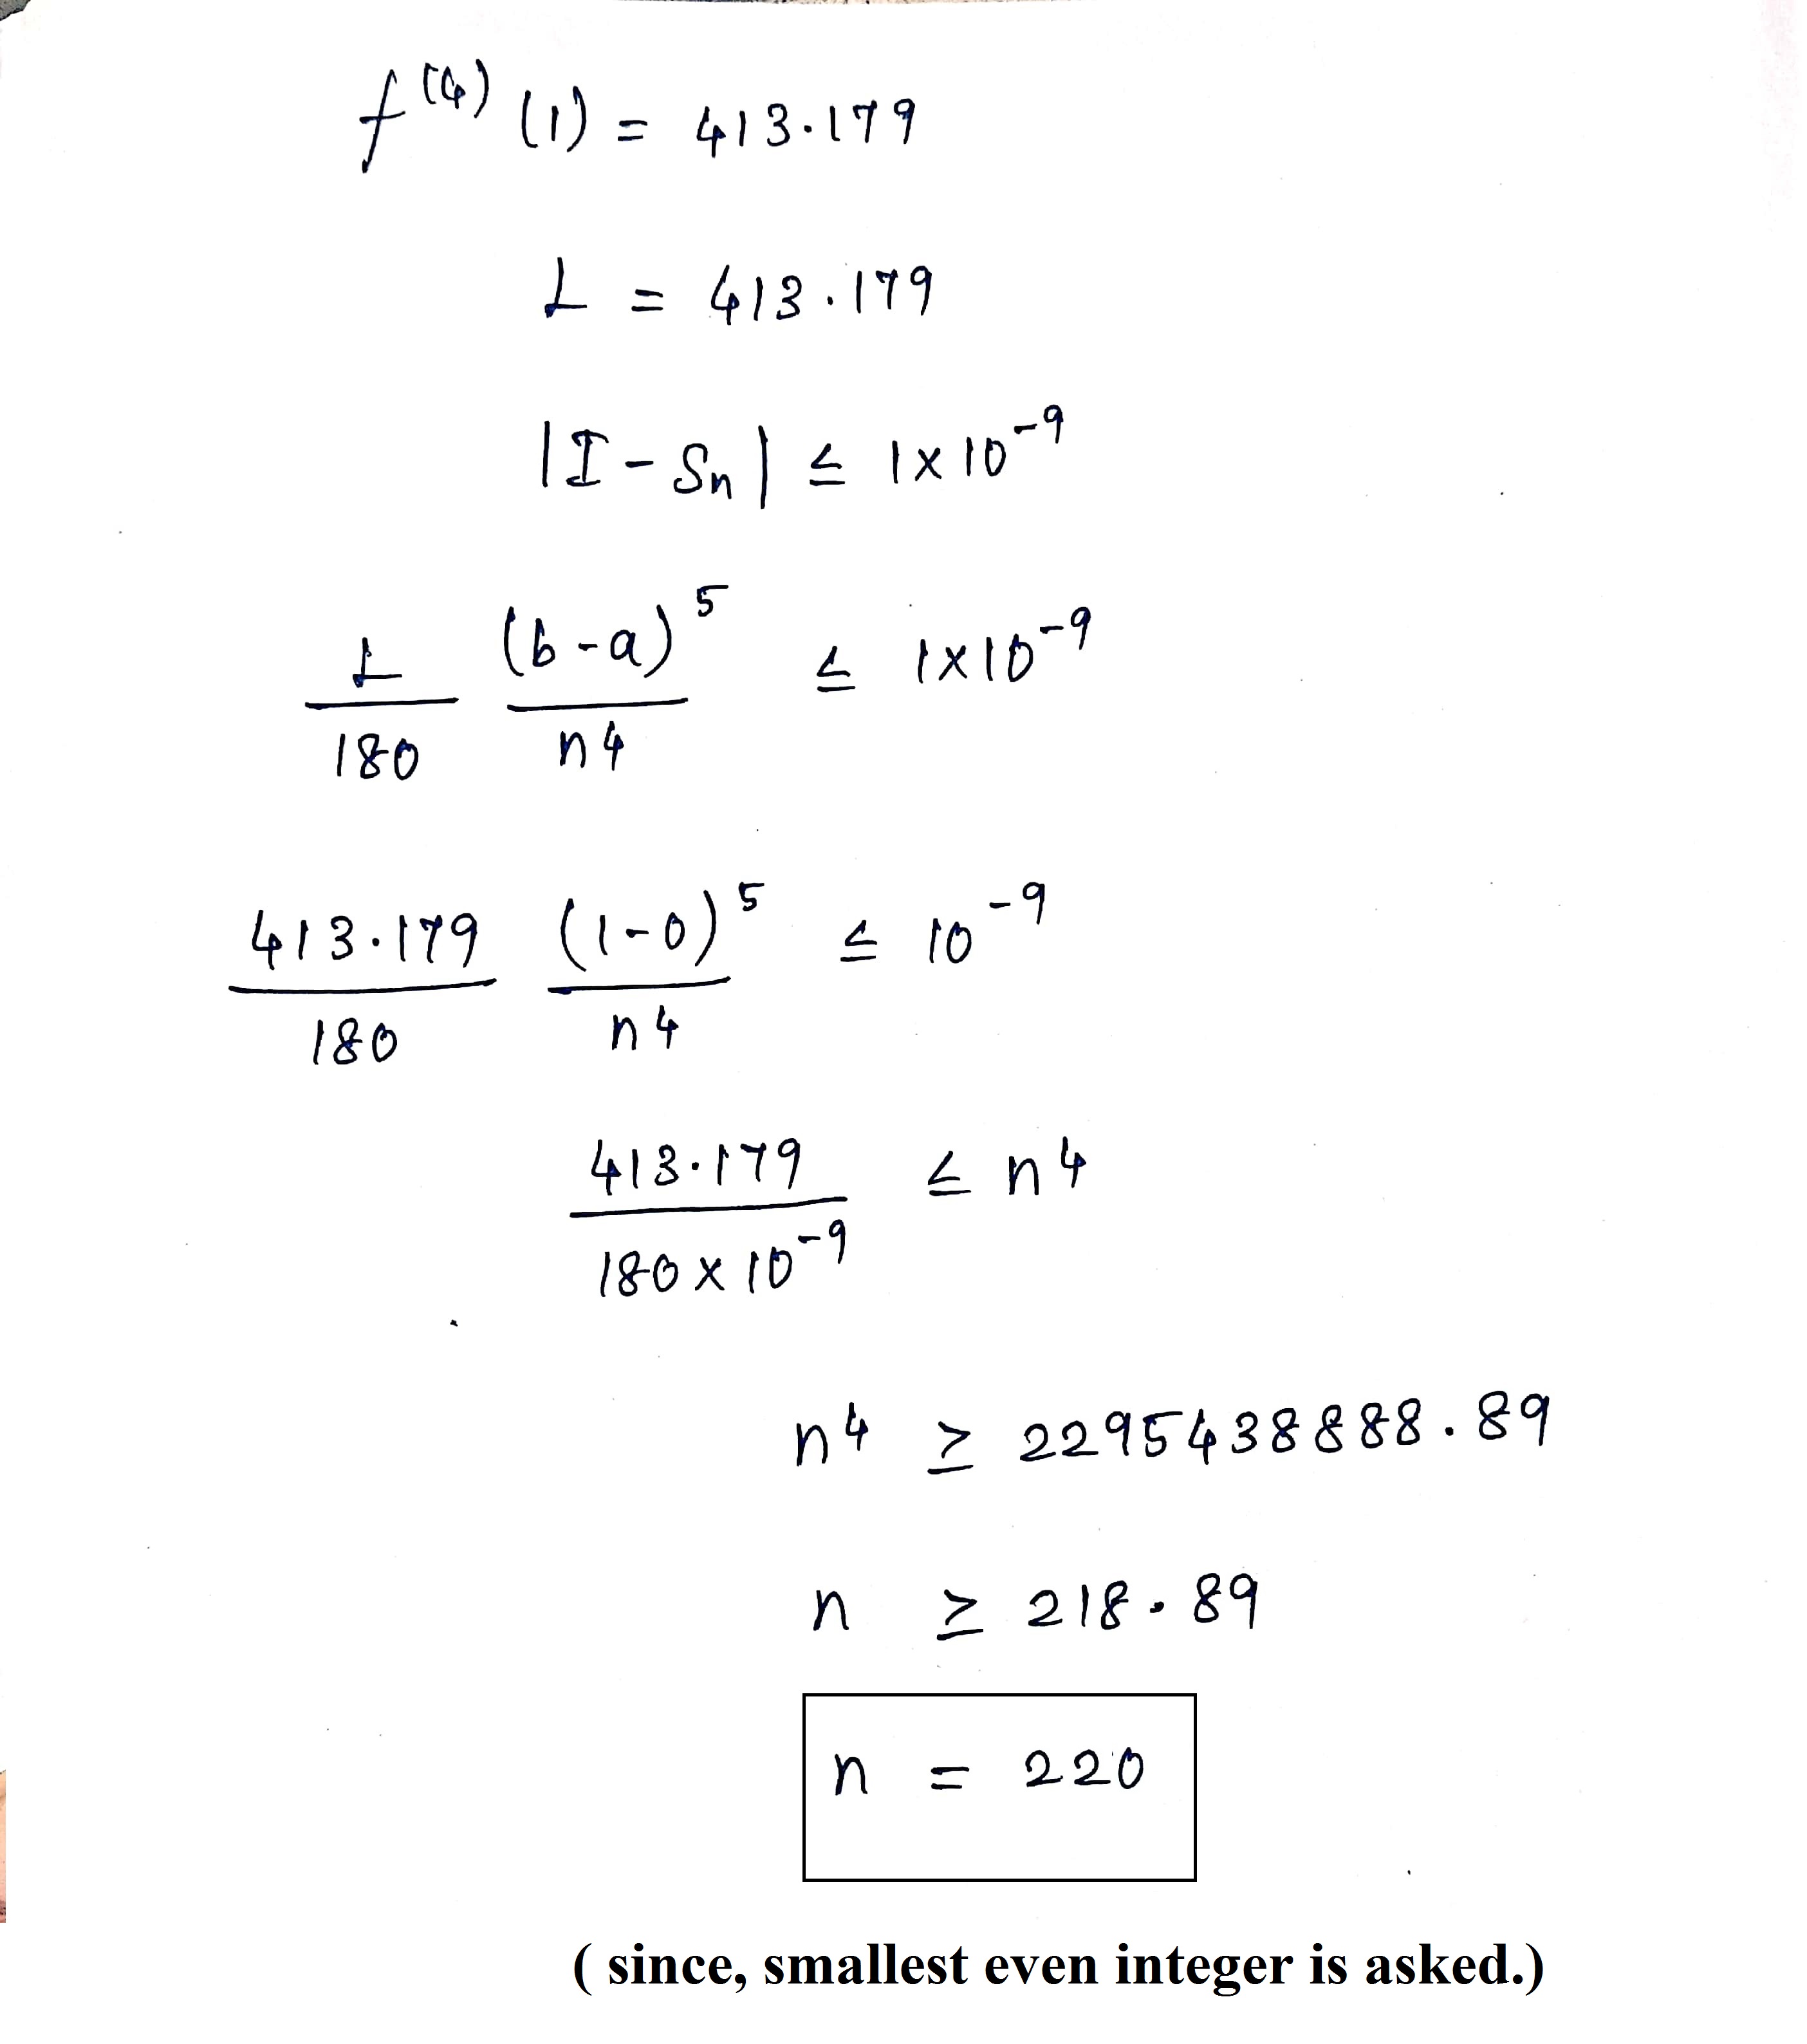 f⁽⁴⁾ (1) = 413.179
L = 413.179
|I - Sn| ≤ 1 x 10⁻⁹
L/180 (b-a)⁵/n4 ≤ 1x10⁻⁹
413.179/180 (1-0)⁵/n4 ≤ 10⁻⁹
413.179/180 x 10⁻⁹ ≤ n4
n4 ≥ 2295438888.89
n ≥ 218.89
n = 220
( since, smallest even integer is asked.)